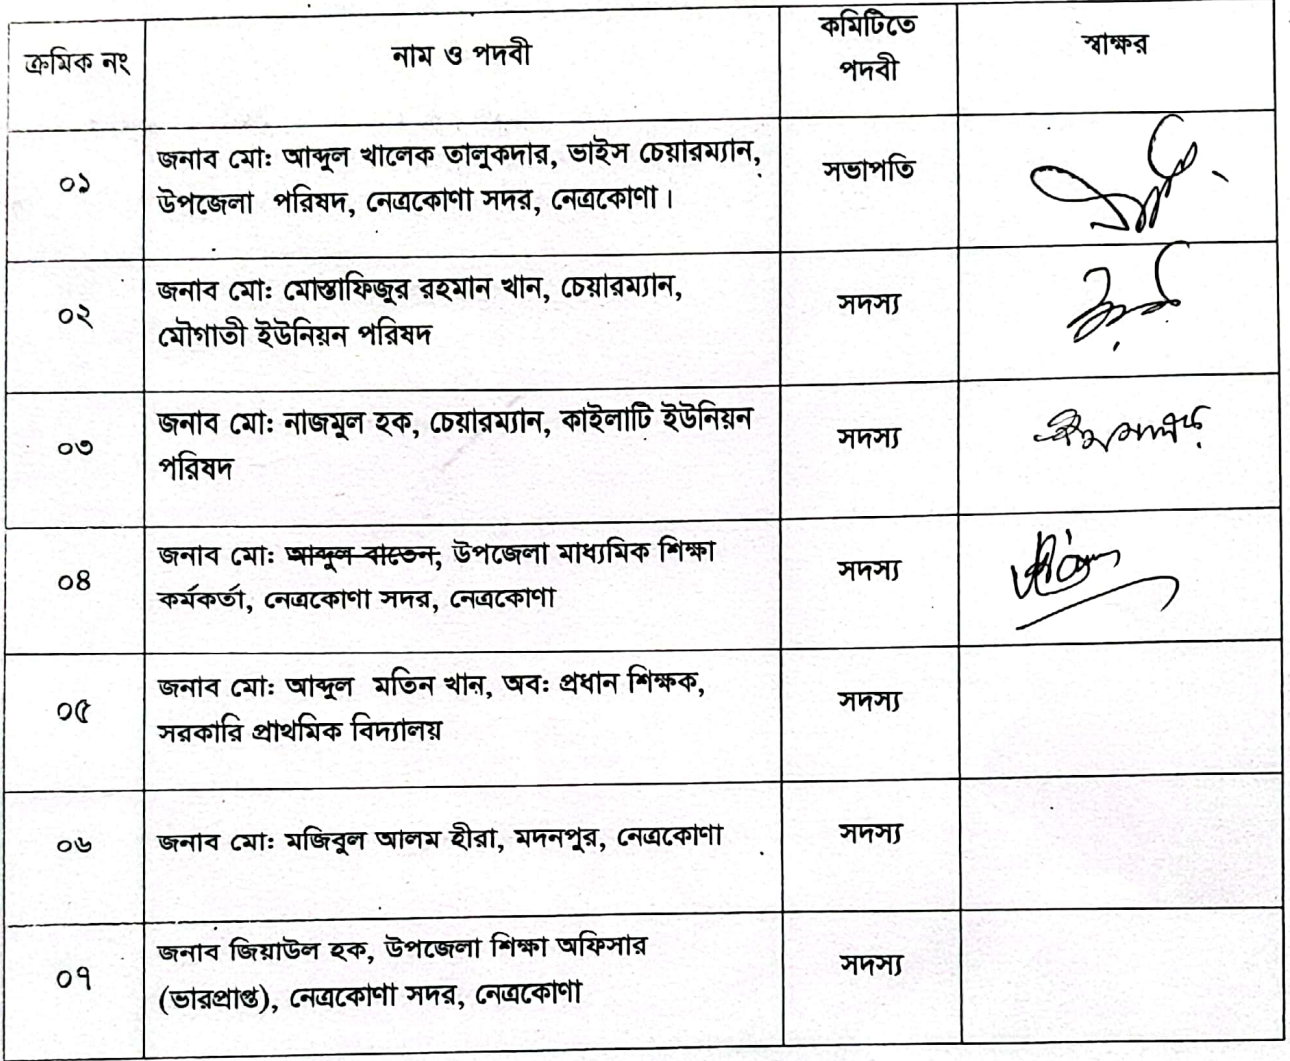 ক্রমিক নং
নাম ও পদবী
কমিটিতে
পদবী
স্বাক্ষর
০১
জনাব মো: আব্দুল খালেক তালুকদার, ভাইস চেয়ারম্যান,
উপজেলা পরিষদ, নেত্রকোণা সদর, নেত্রকোণা।
সভাপতি
০২
জনাব মো: মোস্তাফিজুর রহমান খান, চেয়ারম্যান,
মৌগাতী ইউনিয়ন পরিষদ
সদস্য
০৩
জনাব মো: নাজমুল হক, চেয়ারম্যান, কাইলাটি ইউনিয়ন
পরিষদ
সদস্য
০৪
জনাব মো: আব্দুল বাতেন, উপজেলা মাধ্যমিক শিক্ষা
কর্মকর্তা, নেত্রকোণা সদর, নেত্রকোণা
সদস্য
০৫
জনাব মো: আব্দুল মতিন খান, অব: প্রধান শিক্ষক,
সরকারি প্রাথমিক বিদ্যালয়
সদস্য
০৬
জনাব মো: মজিবুল আলম হীরা, মদনপুর, নেত্রকোণা
সদস্য
০৭
জনাব জিয়াউল হক, উপজেলা শিক্ষা অফিসার
(ভারপ্রাপ্ত), নেত্রকোণা সদর, নেত্রকোণা
সদস্য